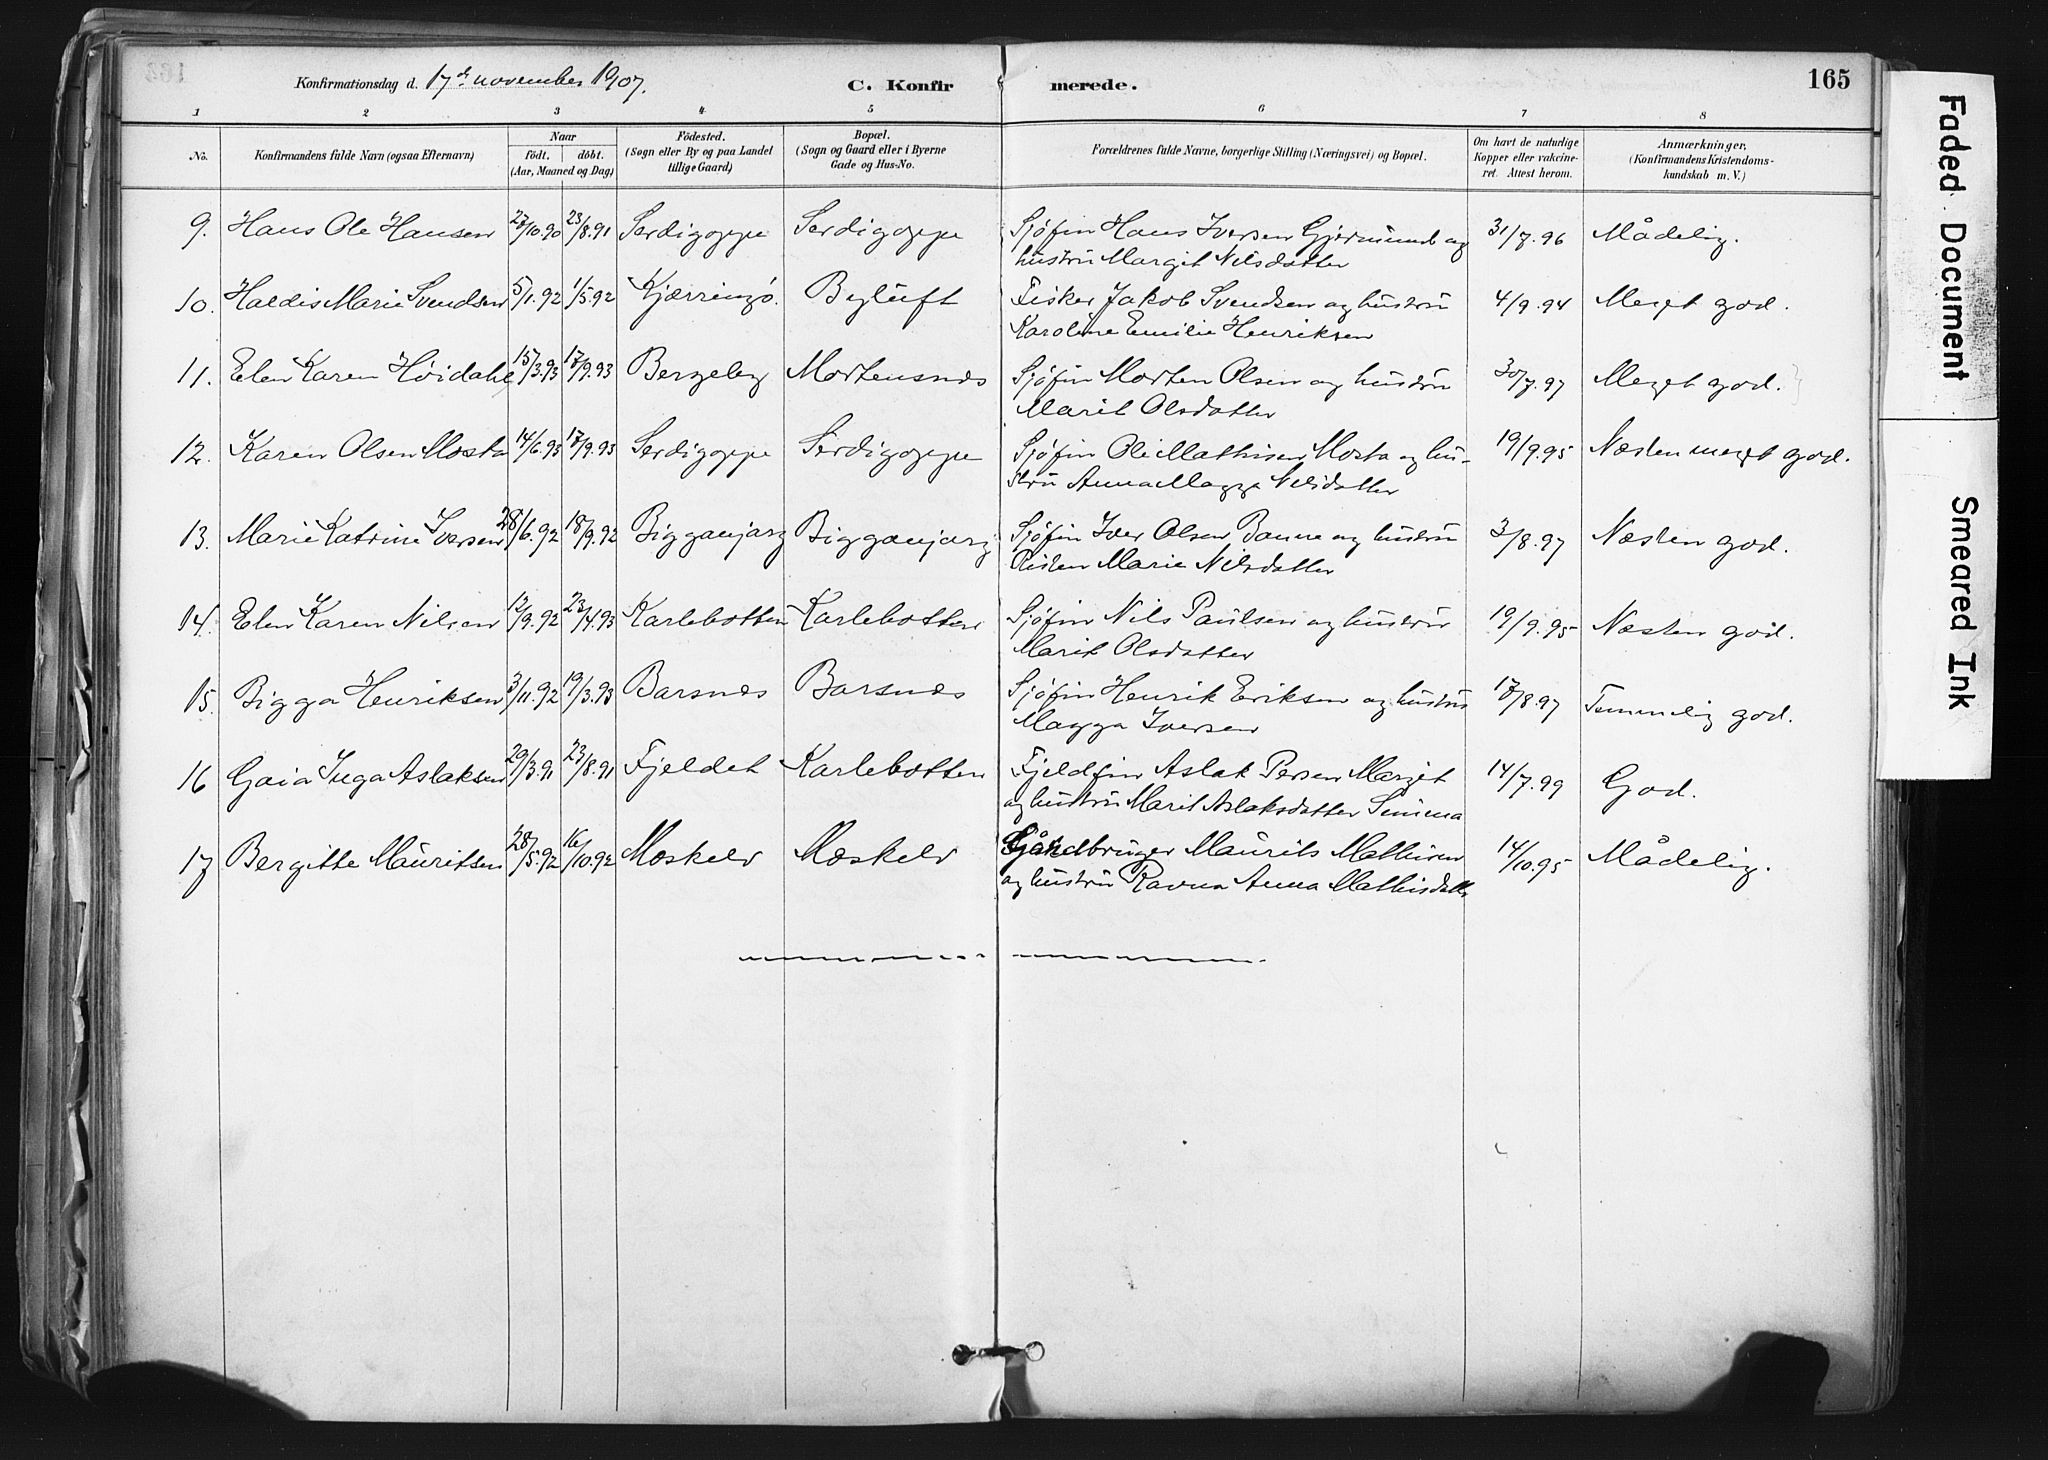 Konfirmationsdag d. 17de november 1907. C. Konfirmerede. 165
1 2 3 4 5 6 7 8
No. Konfirmandens fulde Navn (ogsaa Efternavn) Naar födt. döbt. (Aar, Maaned og Dag) Födested. (Sogn eller By og paa Landet tillige Gaard) Bopæl. (Sogn og Gaard eller i Byerne Gade og Hus-No. Forældrenes fulde Navne, borgerlige Stilling (Næringsvei) og Bopæl. Om havt de naturlige Kopper eller vakcineret. Attest herom. Anmærkninger. (Konfirmandens Kristendomskundskab m. V.)
9. Hans Ole Hansen 27/10.90 23/8.91 Serdigoppe Serdigoppe Sjøfin Hans Iversen Gjermund og 31/7.96 Mådelig.
hustru Margit Nilsdatter
10. Haldis Marie Svendsen 5/1.92 1/5.92 Kjærringø. Byluft Fisker Jakob Svendsen og hustru 4/9.94 Meget god.
Karoline Emilie Henriksen
11. Elen Karen Høidahl 15/3.93 17/9.93 Bergeby Mortensnæs Sjøfin Morten Olsen og hustru 30/7.97 Meget god.
Marit Olsdatter
12. Karen Olsen Mosta 14/6.93 17/9.93 Serdigoppe Serdigoppe Sjøfin Ole Mathisen Mosta og hu- 19/9.95 Næsten meget god.
stru Anna Magga Nilsdatter
13. Marie Katrine Iversen 28/6.92 18/9.92 Bigganjarg Bigganjarg Sjøfin Iver Olsen Banne og hustru 3/8.97 Næsten god.
Risten Marie Nilsdatter
14. Elen Karen Nilsen 12/9.92 23/4.93 Karlebotten Karlebotten Sjøfin Nils Paulsen og hustru 19/9.95 Næsten god.
Marit Olsdatter
15. Bigga Henriksen 3/11.92 19/3.93 Barsnæs Barsnæs Sjøfin Henrik Eriksen og hustru 17/8.97 Temmelig god.
Magga Iversen
16 Gaia Inga Aslaksen 29/3.91 23/8.91 Fjeldet Karlebotten Fjeldfin Aslak Persen Marget 14/7.99 God.
og hustru Marit Aslaksdatter Simma
17 Bergitte Mauritsen 28/5.92 16/10.92 Mæskelv Mæskelv Gårdbruger Maurits Mathisen 14/10.95 Mådelig.
og hustru Ravna Anna Mathisdatter
Faded Document
Smeared Ink